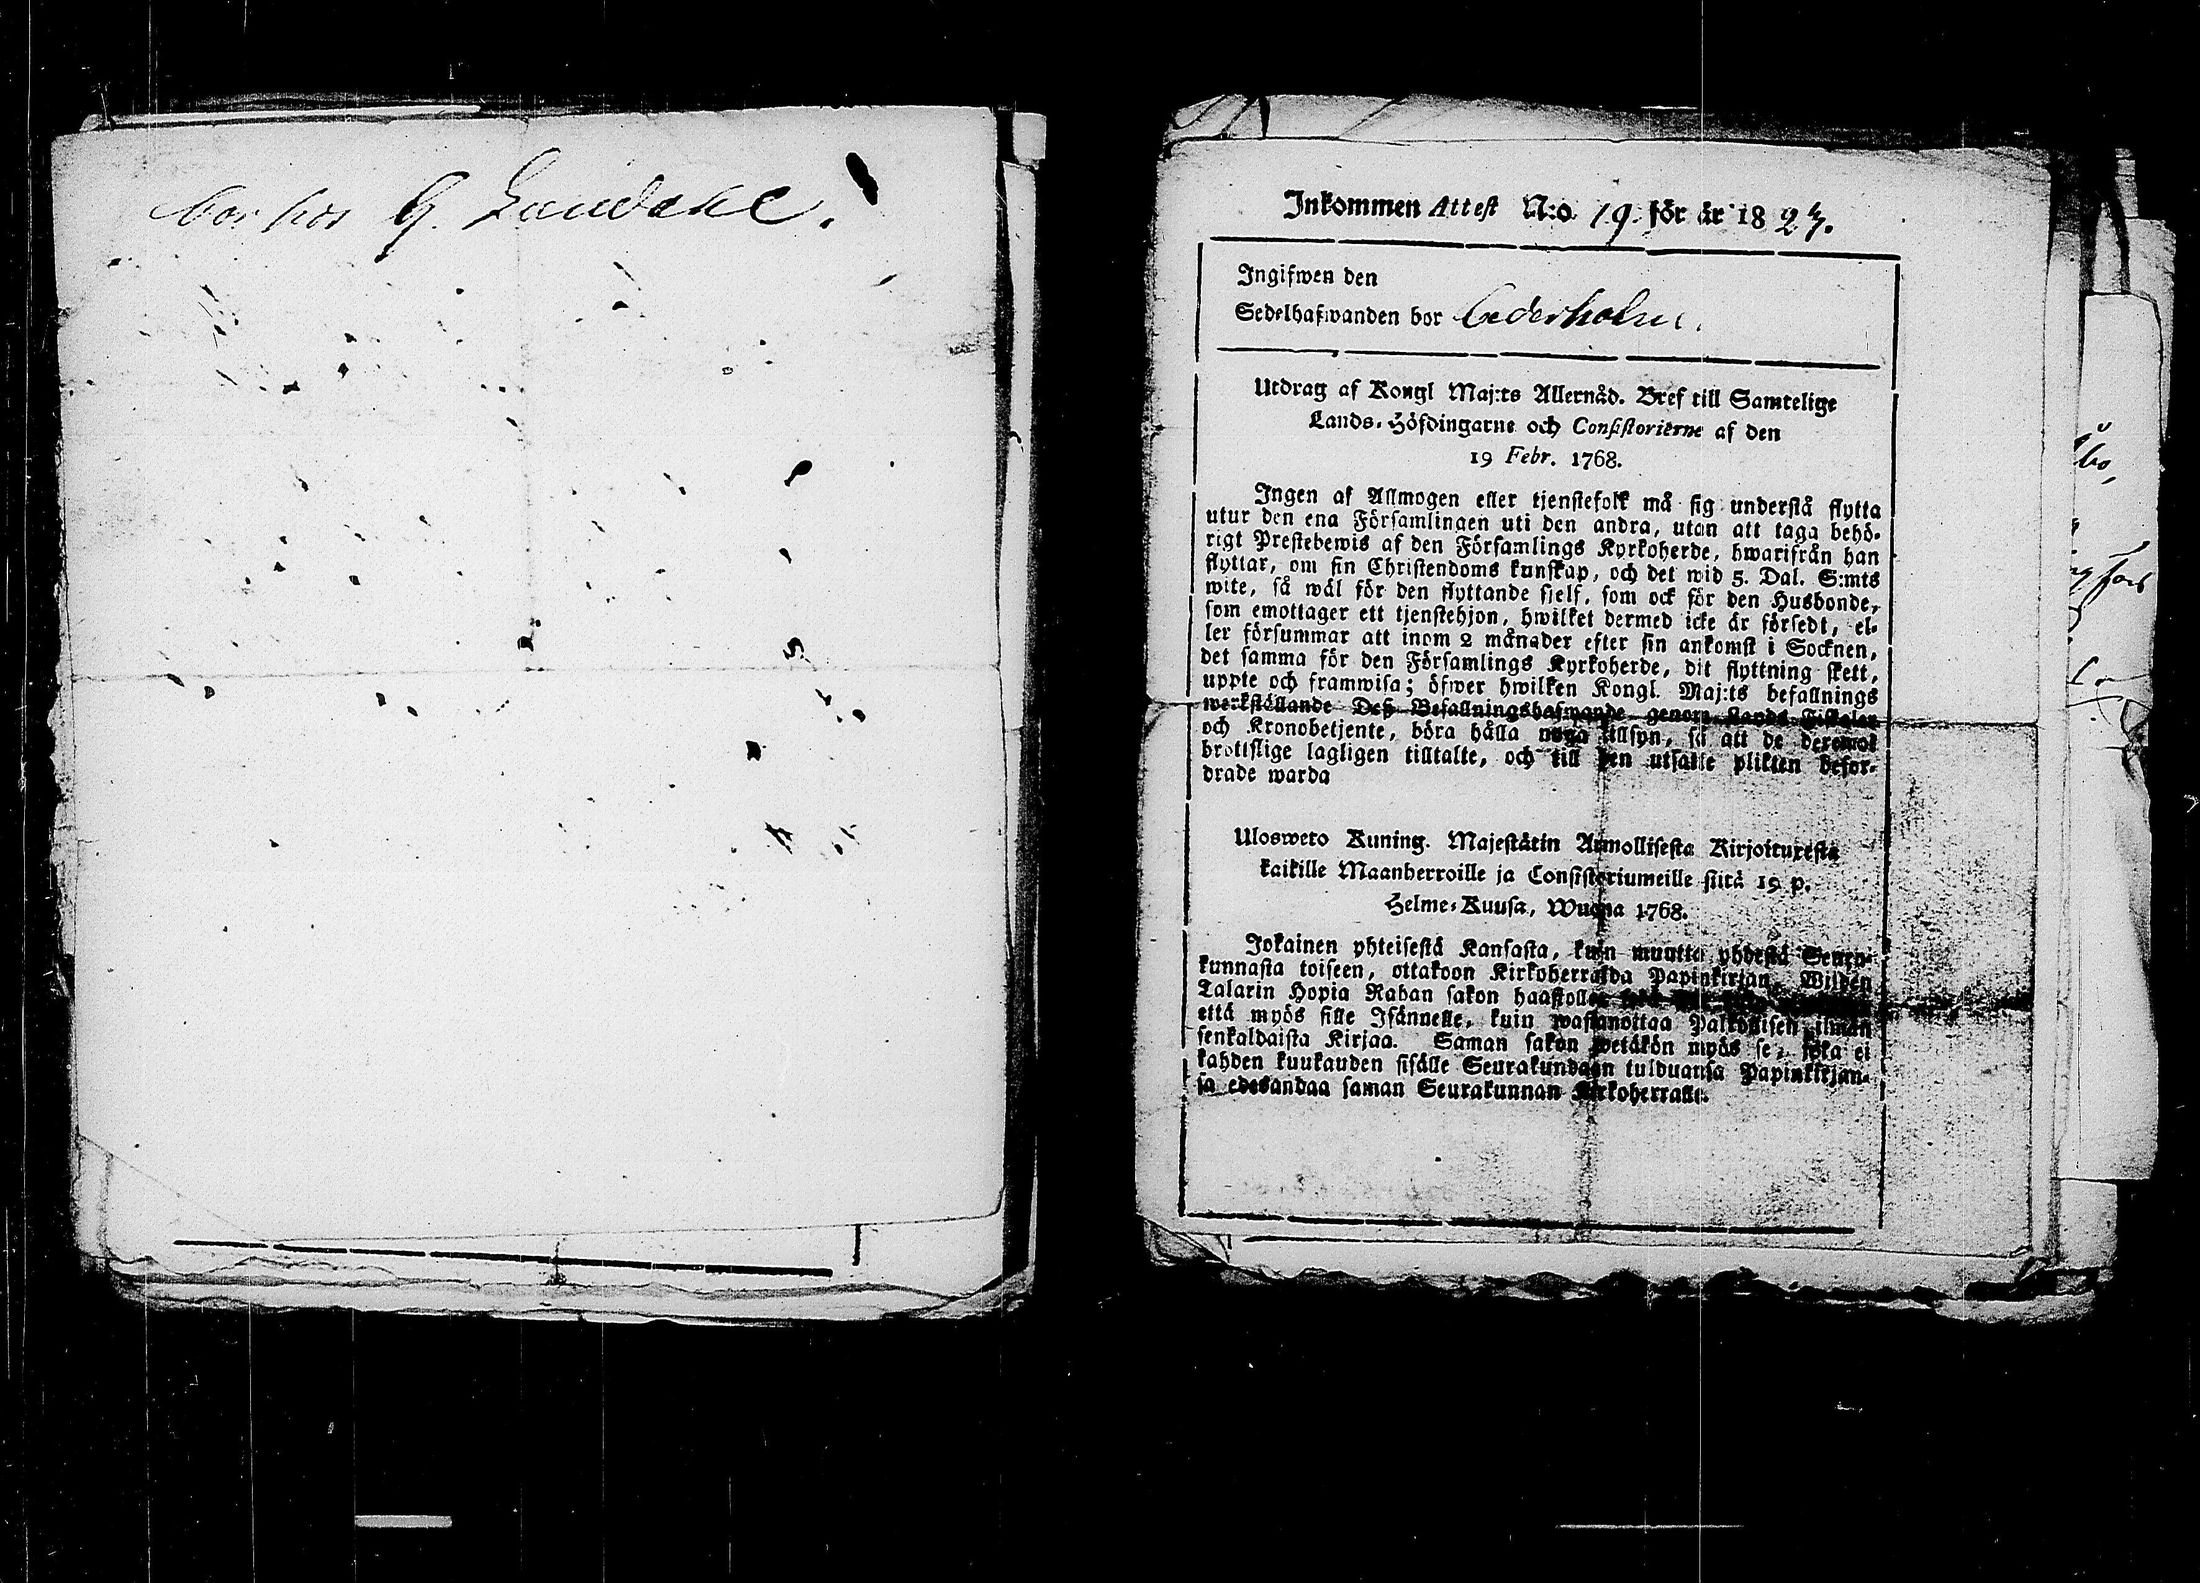 bor hos G. Lundahl.
Inkommen Attest N:o 19. för år 1824.
Ingifwen den
Sedelhafwanden bor Cederholm.
Utdrag af Kongl Maj:ts Allernåd. Bref till Samtelige
Lands-Höfdingarne och Consistorierne af den
19 Febr. 1768.
Ingen af Allmogen eller tjenstefolk må sig understå flytta
utur den ena Församlingen uti den andra, utan att taga behö-
rigt Prestebewis af den Församlings Kyrkoherde, hwarifrån han
flyttar, om sin Christendoms kunskap, och det wid 5. Dal. S:mts
wite, så wäl för den flyttande sjelf, som ock för den Husbonde,
som emottager ett tjenstehjon, hwilket dermed icke är försedt, el-
ler försummar att inom 2 månader efter sin ankomst i Socknen,
det samma för den Församlings Kyrkoherde, dit flyttning skett,
uppte och framwisa; öfwer hwilken Kongl. Maj:ts befallnings
werkställande Deß Befallningshafwande genom Lands Fiskaler
och Kronobetjente, böra hålla noga tillsyn, så att de deremot
brottslige lagligen tilltalte, och till den utsatte plikten befor-
drade warda
Ulosweto Kuning. Majestätin Armollisesta Kirjoituxesta
kaikille Maanherroille ja Consistoriumeille siitä 19 p.
Helme-Kuusa, Wuonna 1768.
Jokainen yhteisestä Kansasta, kuin muutta yhdestä Seura-
kunnasta toiseen, ottakoon Kirkoherralda Papinkirjan, Wiiden
Talarin Hopia Rahan sakon haastolla,
että myös sille Isännelle, kuin wastanottaa Palkollisen ilman
senkaldaista Kirjaa. Saman sakon wetäkön myös se, joka ei
kahden kuukauden sisälle Seurakundaan tulduansa Papinkirjan-
sa edesandaa saman Seurakunnan Kirkoherralle.